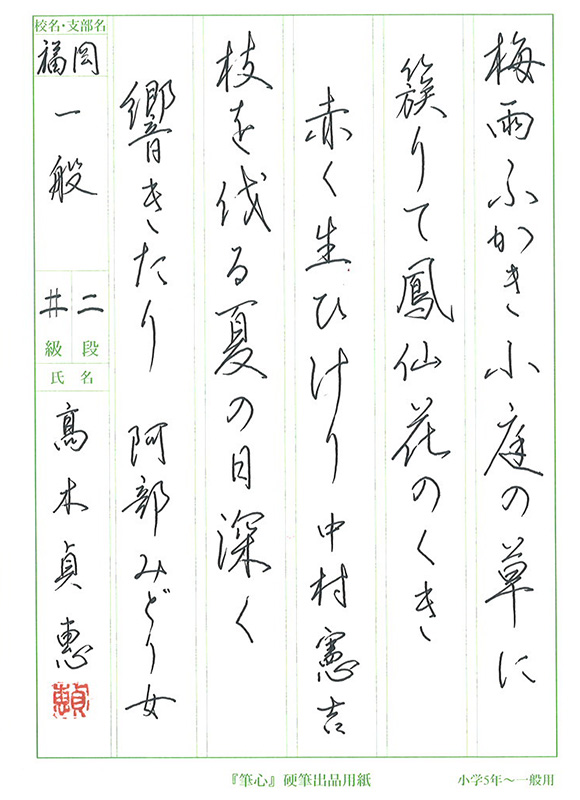 梅雨ふかき小庭の草に
簇りて鳳仙花のくき
赤く生ひけり 中村憲吉
枝を伐る夏の日深く
響きたり 阿部みどり女
校名・支部名
福岡
一般
二段
井級
氏名
高木貞惠
『筆心』硬筆出品用紙
小学5年〜一般用